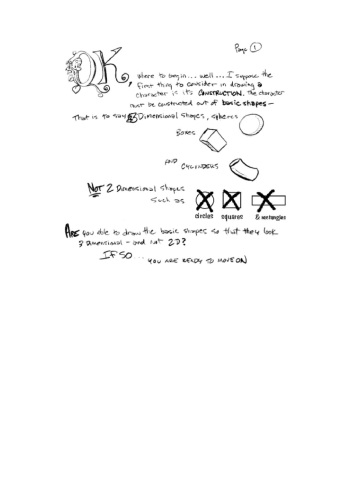 Page 1
OK, where to begin... well... I suppose the
first thing to consider in drawing a
character is it's CONSTRUCTION. The character
must be constructed out of basic shapes—
That is to say 3 Dimensional shapes, spheres
Boxes
AND
CYLINDERS
NOT 2 Dimensional shapes
such as
circles squares & rectangles
ARE you able to draw the basic shapes so that they look
3 dimensional - and not 2D?
IF SO... YOU ARE READY TO MOVE ON